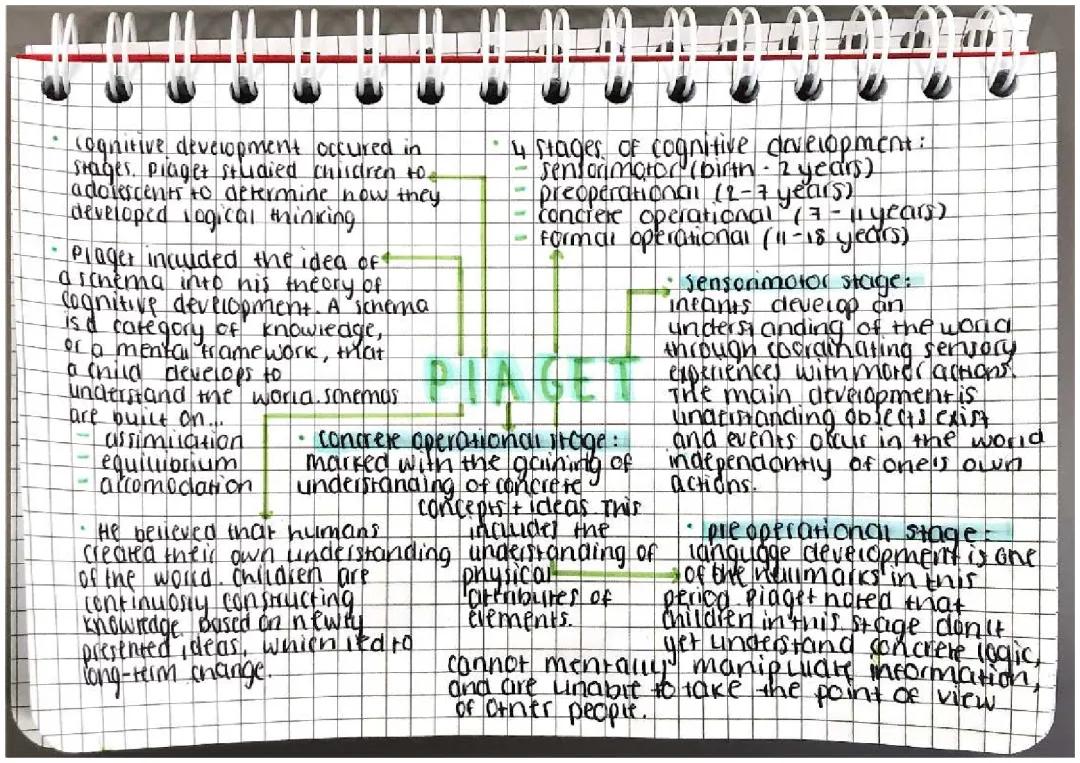 · cognitive development occured in
stages. Piaget studied children to
adolescents to determine how they
developed logical thinking
· Piaget included the idea of
a schema into his theory of
cognitive development. A schema
is a category of knowledge,
or a mental framework, that
a child develops to
understand the world. schemas
are built on...
- assimilation
- equilibrium
- accomodation
· He believed that humans
created their own understanding
of the world. children are
continuosly constructing
knowledge based on newly
presented ideas, which led to
long-term change.
PIAGET
· 4 stages of cognitive development:
- sensorimotor (birth - 2 years)
- preoperational (2-7 years)
- concrete operational (7-11 years)
- formal operational (11-18 years)
· sensorimotor stage:
infants develop an
understanding of the world
through coordinating sensory
experiences with motor actions.
The main development is
understanding objects exist
and events occur in the world
independantly of one's own
actions.
· concrete operational stage:
marked with the gaining of
understanding of concrete
concepts + ideas This
includes the
understanding of
physical
attributes of
elements.
· preoperational stage:
language development is one
of the hallmarks in this
period Piaget noted that
children in this stage don't
yet understand concrete logic,
cannot mentally manipulate information,
and are unable to take the point of view
of other people.